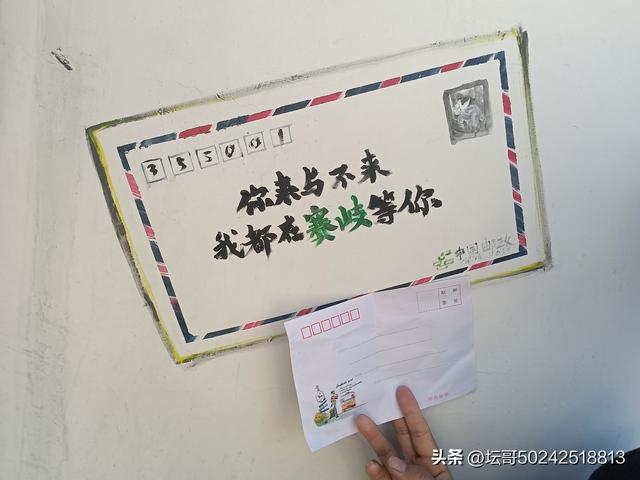 355001
你来与不来
我都在赛岐等你
中国邮政
贴 邮
票 处
头条 @坛哥50242518813